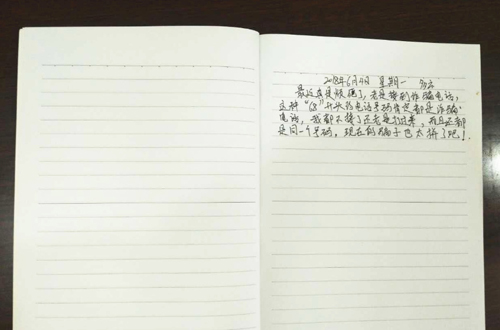 2018年6月4日 星期一 多云
最近真是烦透了,老是接到诈骗电话,
这种“68”开头的电话号码肯定都是诈骗
电话,我都不接了还老是打过来,而且还都
是同一个号码,现在的骗子也太拼了吧!